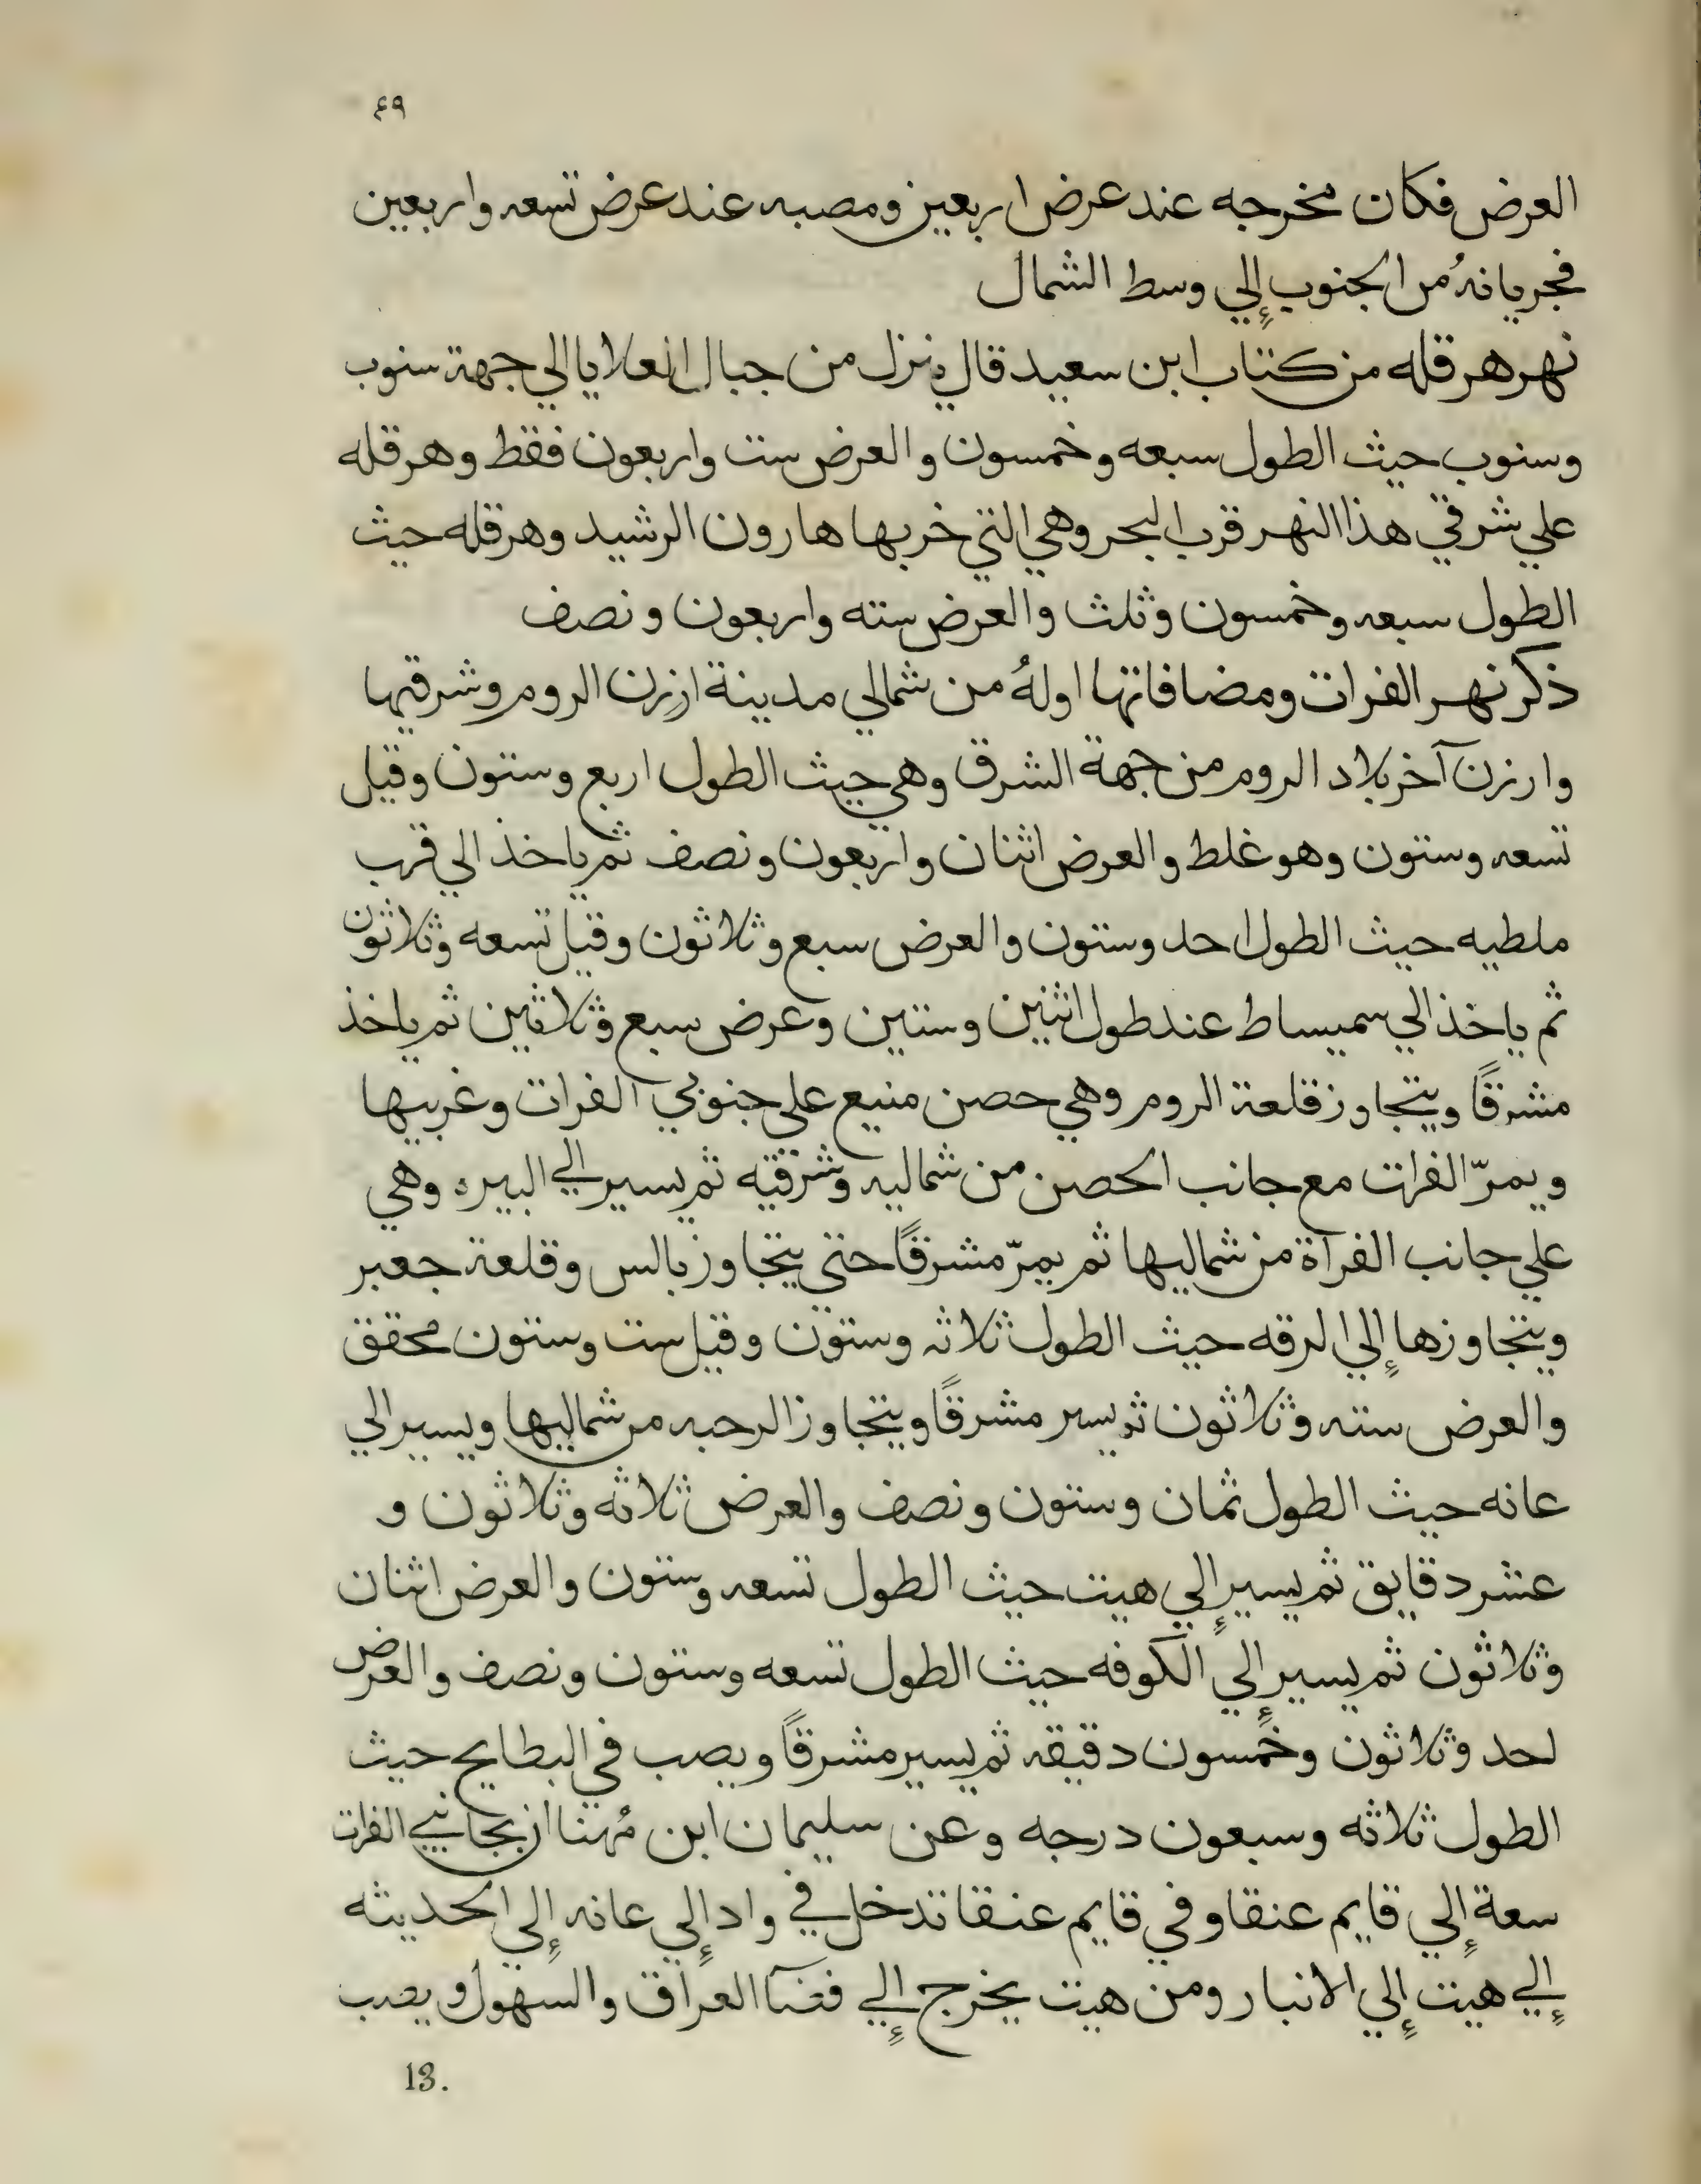 ٤٩
العرض فكان مخرجه عند عرض اربعين ومصبه عند عرض تسعه واربعين
فجريانهُ من الجنوب إلي وسط الشمال
نهر هرقله من كتاب ابن سعيد قال ينزل من جبال العلايا الي جهة سنوب
وسنوب حيث الطول سبعه وخمسون والعرض ست واربعون فقط وهرقله
علي شرقي هذا النهر قرب البحر وهي التي خربها هارون الرشيد وهرقله حيث
الطول سبعه وخمسون وثلث والعرض سته واربعون ونصف
ذكر نهر الفرات ومضافاتها اولهُ من شمالي مدينة ارزن الروم وشرقيها
وارزن آخر بلاد الروم من جهة الشرق وهي حيث الطول اربع وستون وقيل
تسعه وستون وهو غلط والعرض اثنان واربعون ونصف ثم ياخذ الي قرب
ملطيه حيث الطول احد وستون والعرض سبع وثلاثون وقيل تسعه وثلاثون
ثم ياخذ الي سميساط عند طول اثنين وستين وعرض سبع وثلاثين ثم ياخذ
مشرقًا ويتجاوز قلعة الروم وهي حصن منيع علي جنوبي الفرات وغربيها
ويمرّ الفرات مع جانب الحصن من شماليه وشرقيه ثم يسير الي البيره وهي
علي جانب الفرآة من شماليها ثم يمرّ مشرقًا حتي يتجاوز بالس وقلعة جعبر
ويتجاوزها إلي الرقه حيث الطول ثلاثه وستون وقيل ست وستون محقق
والعرض سته وثلاثون ثم يسير مشرقًا ويتجاوز الرحبه من شماليها ويسير الي
عانه حيث الطول ثمان وستون ونصف والعرض ثلاثه وثلاثون و
عشر دقايق ثم يسير إلي هيت حيث الطول تسعه وستون والعرض اثنان
وثلاثون ثم يسير إلي الكوفه حيث الطول تسعه وستون ونصف والعرض
احد وثلاثون وخمسون دقيقه ثم يسير مشرقًا ويصب في البطايح حيث
الطول ثلاثه وسبعون درجه وعن سليمان ابن مُهنا ان بجانبي الفرات
سعة إلي قايم عنقا وفي قايم عنقا تدخل في واد إلي عانه إلي الحديثه
إلي هيت إلي الانبار ومن هيت يخرج إلي فضآ العراق والسهول ويصب
13.